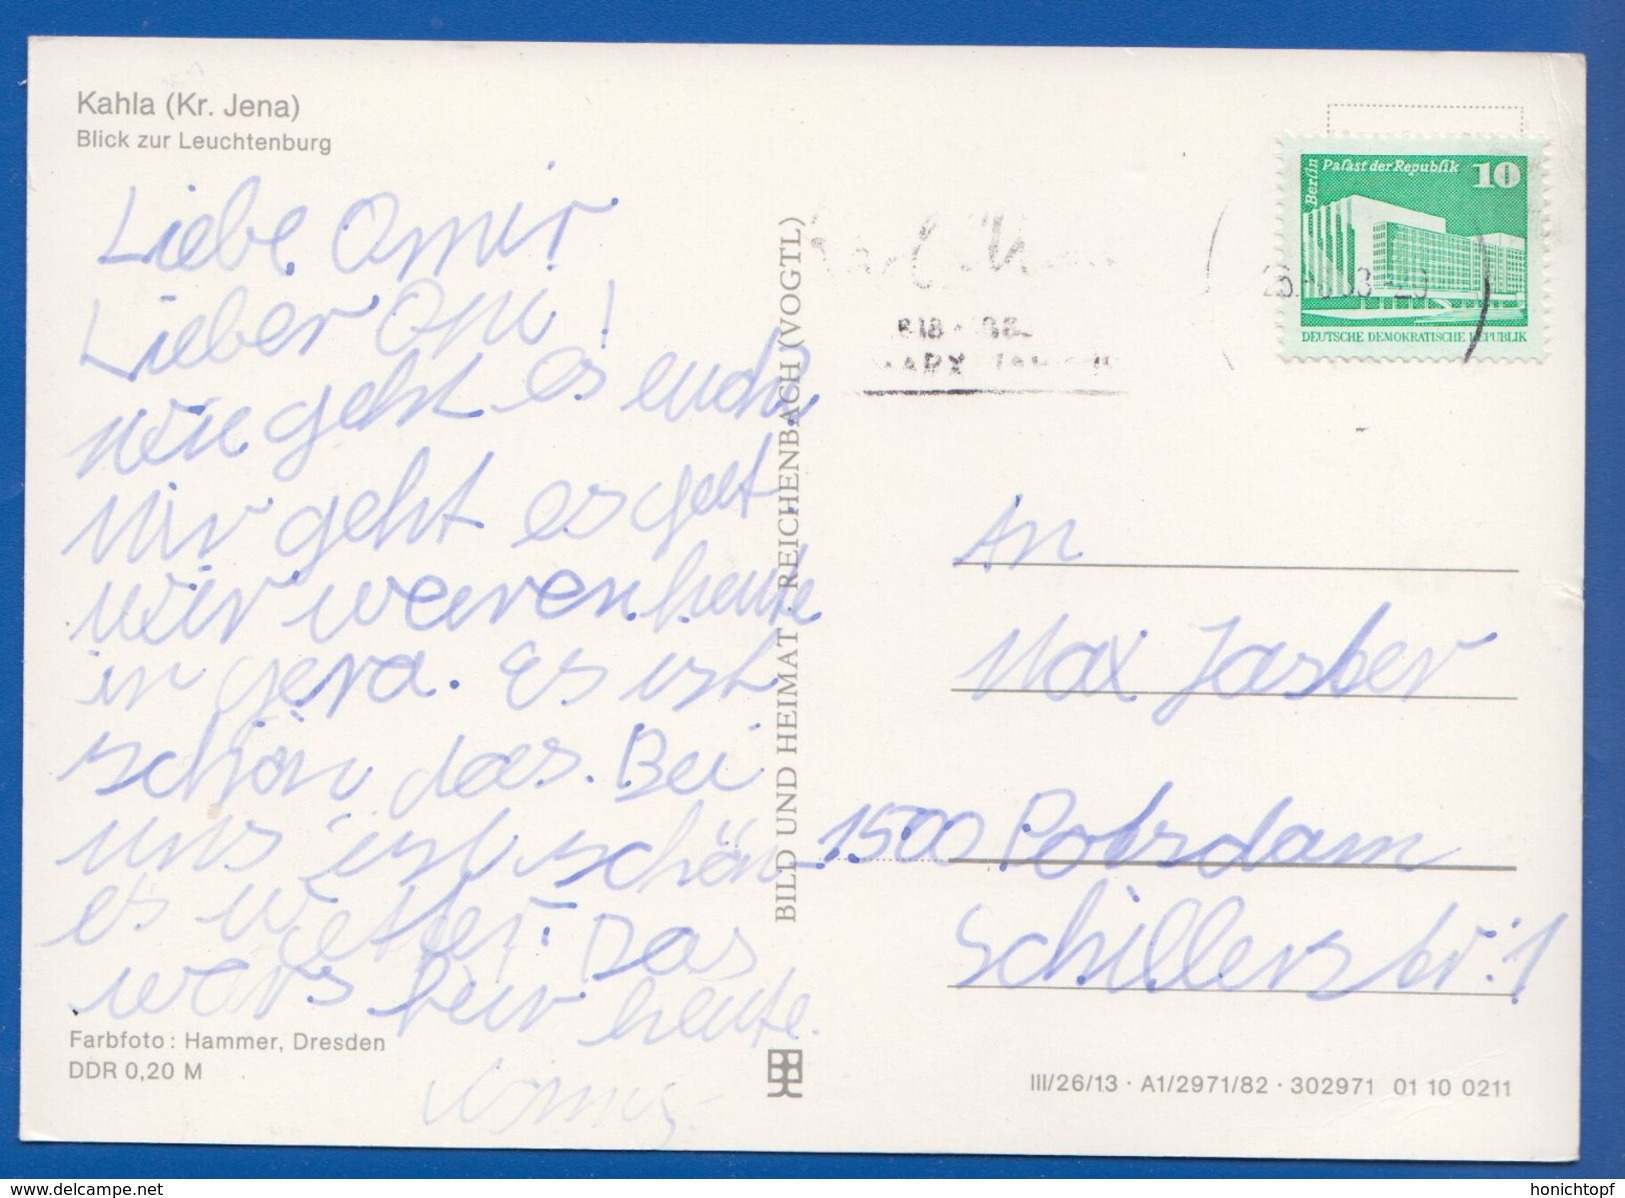 Kahla (Kr. Jena)
Blick zur Leuchtenburg
Liebe Omi
Lieber Opi!
wie geht es euch
Mir geht es gut
wir waren heute
in gera. Es ist
schön das. Bei
uns ist schön
es wetter. Das
wars für heute.
Farbfoto: Hammer, Dresden
DDR 0,20 M
BILD UND HEIMAT · REICHENBACH (VOGTL)
Karl Marx
MARX
Berlin
Palast der Republik 10
DEUTSCHE DEMOKRATISCHE REPUBLIK
An
Max Jasber
1500 Potsdam
Schillerstr. 1
III/26/13 · A1/2971/82 · 302971 01 10 0211
www.delcampe.net
honichtopf